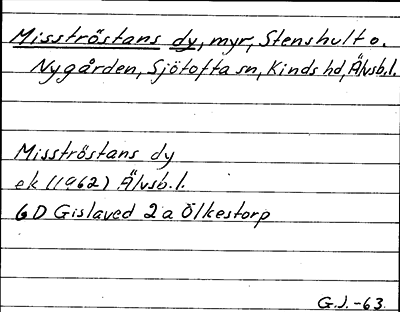 Misströstans dy, myr, Stenshult o.
Nygården, Sjötofta sn, Kinds hd, Älvsb.l.
Misströstans dy
ek (1962) Älvsb.l.
6D Gislaved 2a Ölkestorp
G.J.-63